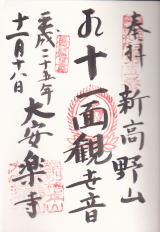 奉拝
新高野山
十一面観世音
平成二十五年
十一月十八日
大安楽寺